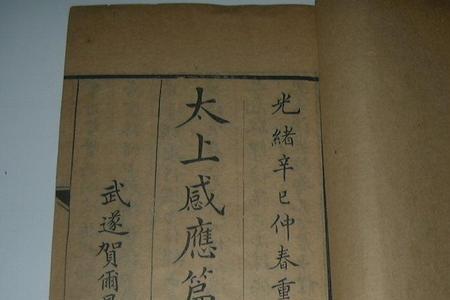 光緒辛巳仲春重
太上感應篇
武遂賀爾